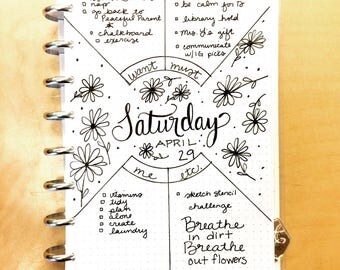 nap
go back to
Peaceful Parent
chalkboard
exercise
be calm for B
library hold
Ms. B's gift
communicate
w/IG pics
want
must
Saturday
APRIL
29
me
etc.
vitamins
tidy
plan
alone
create
laundry
sketch stencil
challenge
Breathe
in dirt
Breathe
out flowers